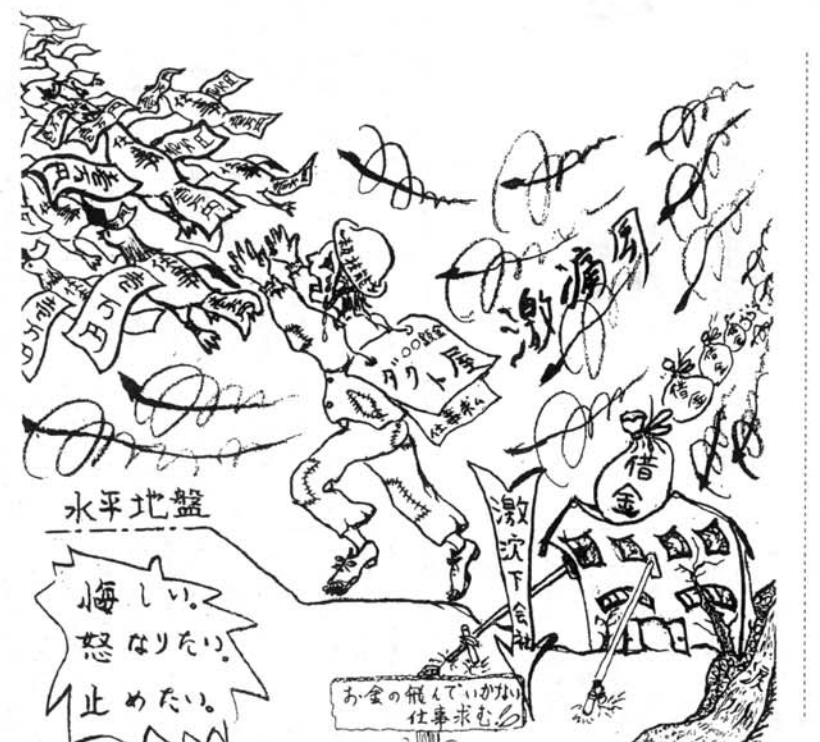 壱万円
壱万円
壱万円
仕事
激痛風
○○鈑金
ダクト屋
仕事求ム
借金
借金
借金
激沈下会社
水平地盤
悔しい。
怒なりたい。
止めたい。
お金の飛んでいかない
仕事求む!!